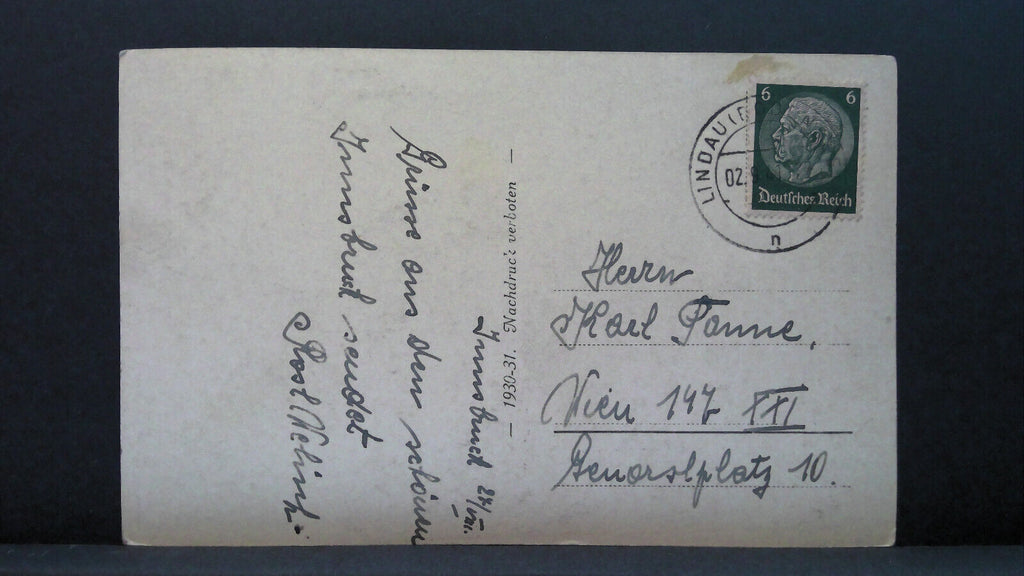 Innsbruck 27/VIII.
Grüsse aus dem schönen
Innsbruck sendet
— 1930-31. Nachdruck verboten —
LINDAU (B
02.
n
6 6
Deutsches Reich
Herrn
Karl Panne,
Wien 147 XXI
10.